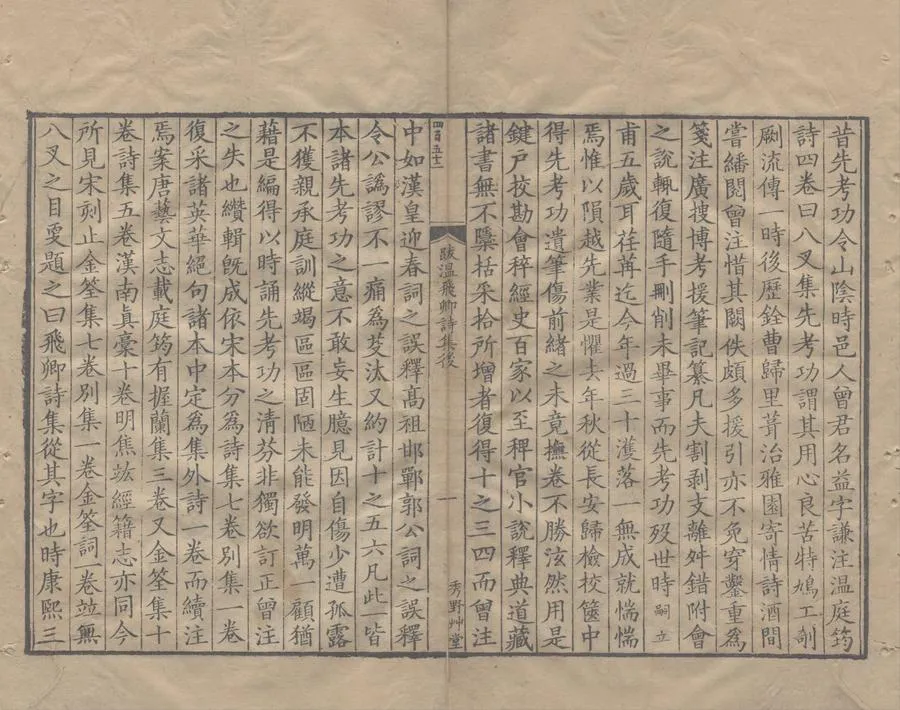 昔先考功令山陰時邑人曾君名益字謙注溫庭筠
詩四卷曰八叉集先考功謂其用心良苦特鳩工剞
劂流傳一時後歷銓曹歸里葺治雅園寄情詩酒間
嘗繙閱曾注惜其闕佚頗多援引亦不免穿鑿重為
箋注廣搜博考援筆記纂凡夫割剥支離舛錯附會
之說輒復隨手刪削未畢事而先考功歿世時嗣立
甫五歲耳荏苒迄今年過三十濩落一無成就惴惴
焉惟以隕越先業是懼去年秋從長安歸檢校篋中
得先考功遺筆傷前緒之未竟撫卷不勝泫然用是
鍵戶挍勘會稡經史百家以至稗官小說釋典道藏
諸書無不檃栝采拾所增者復得十之三四而曾注
四百五十二
跋溫飛卿詩集後
一
秀野艸堂
中如漢皇迎春詞之誤釋髙祖邯鄲郭公詞之誤釋
令公譌謬不一痛為芟汰又約計十之五六凡此皆
本諸先考功之意不敢妄生臆見因自傷少遭孤露
不獲親承庭訓縱竭區區固陋未能發明萬一顧猶
藉是編得以時誦先考功之清芬非獨欲訂正曾注
之失也纘輯旣成依宋本分為詩集七卷別集一卷
復采諸英華絕句諸本中定為集外詩一卷而續注
焉案唐藝文志載庭筠有握蘭集三卷又金筌集十
卷詩集五卷漢南眞稾十卷明焦竑經籍志亦同今
所見宋刻止金筌集七卷別集一卷金筌詞一卷竝無
八叉之目爰題之曰飛卿詩集從其字也時康熙三